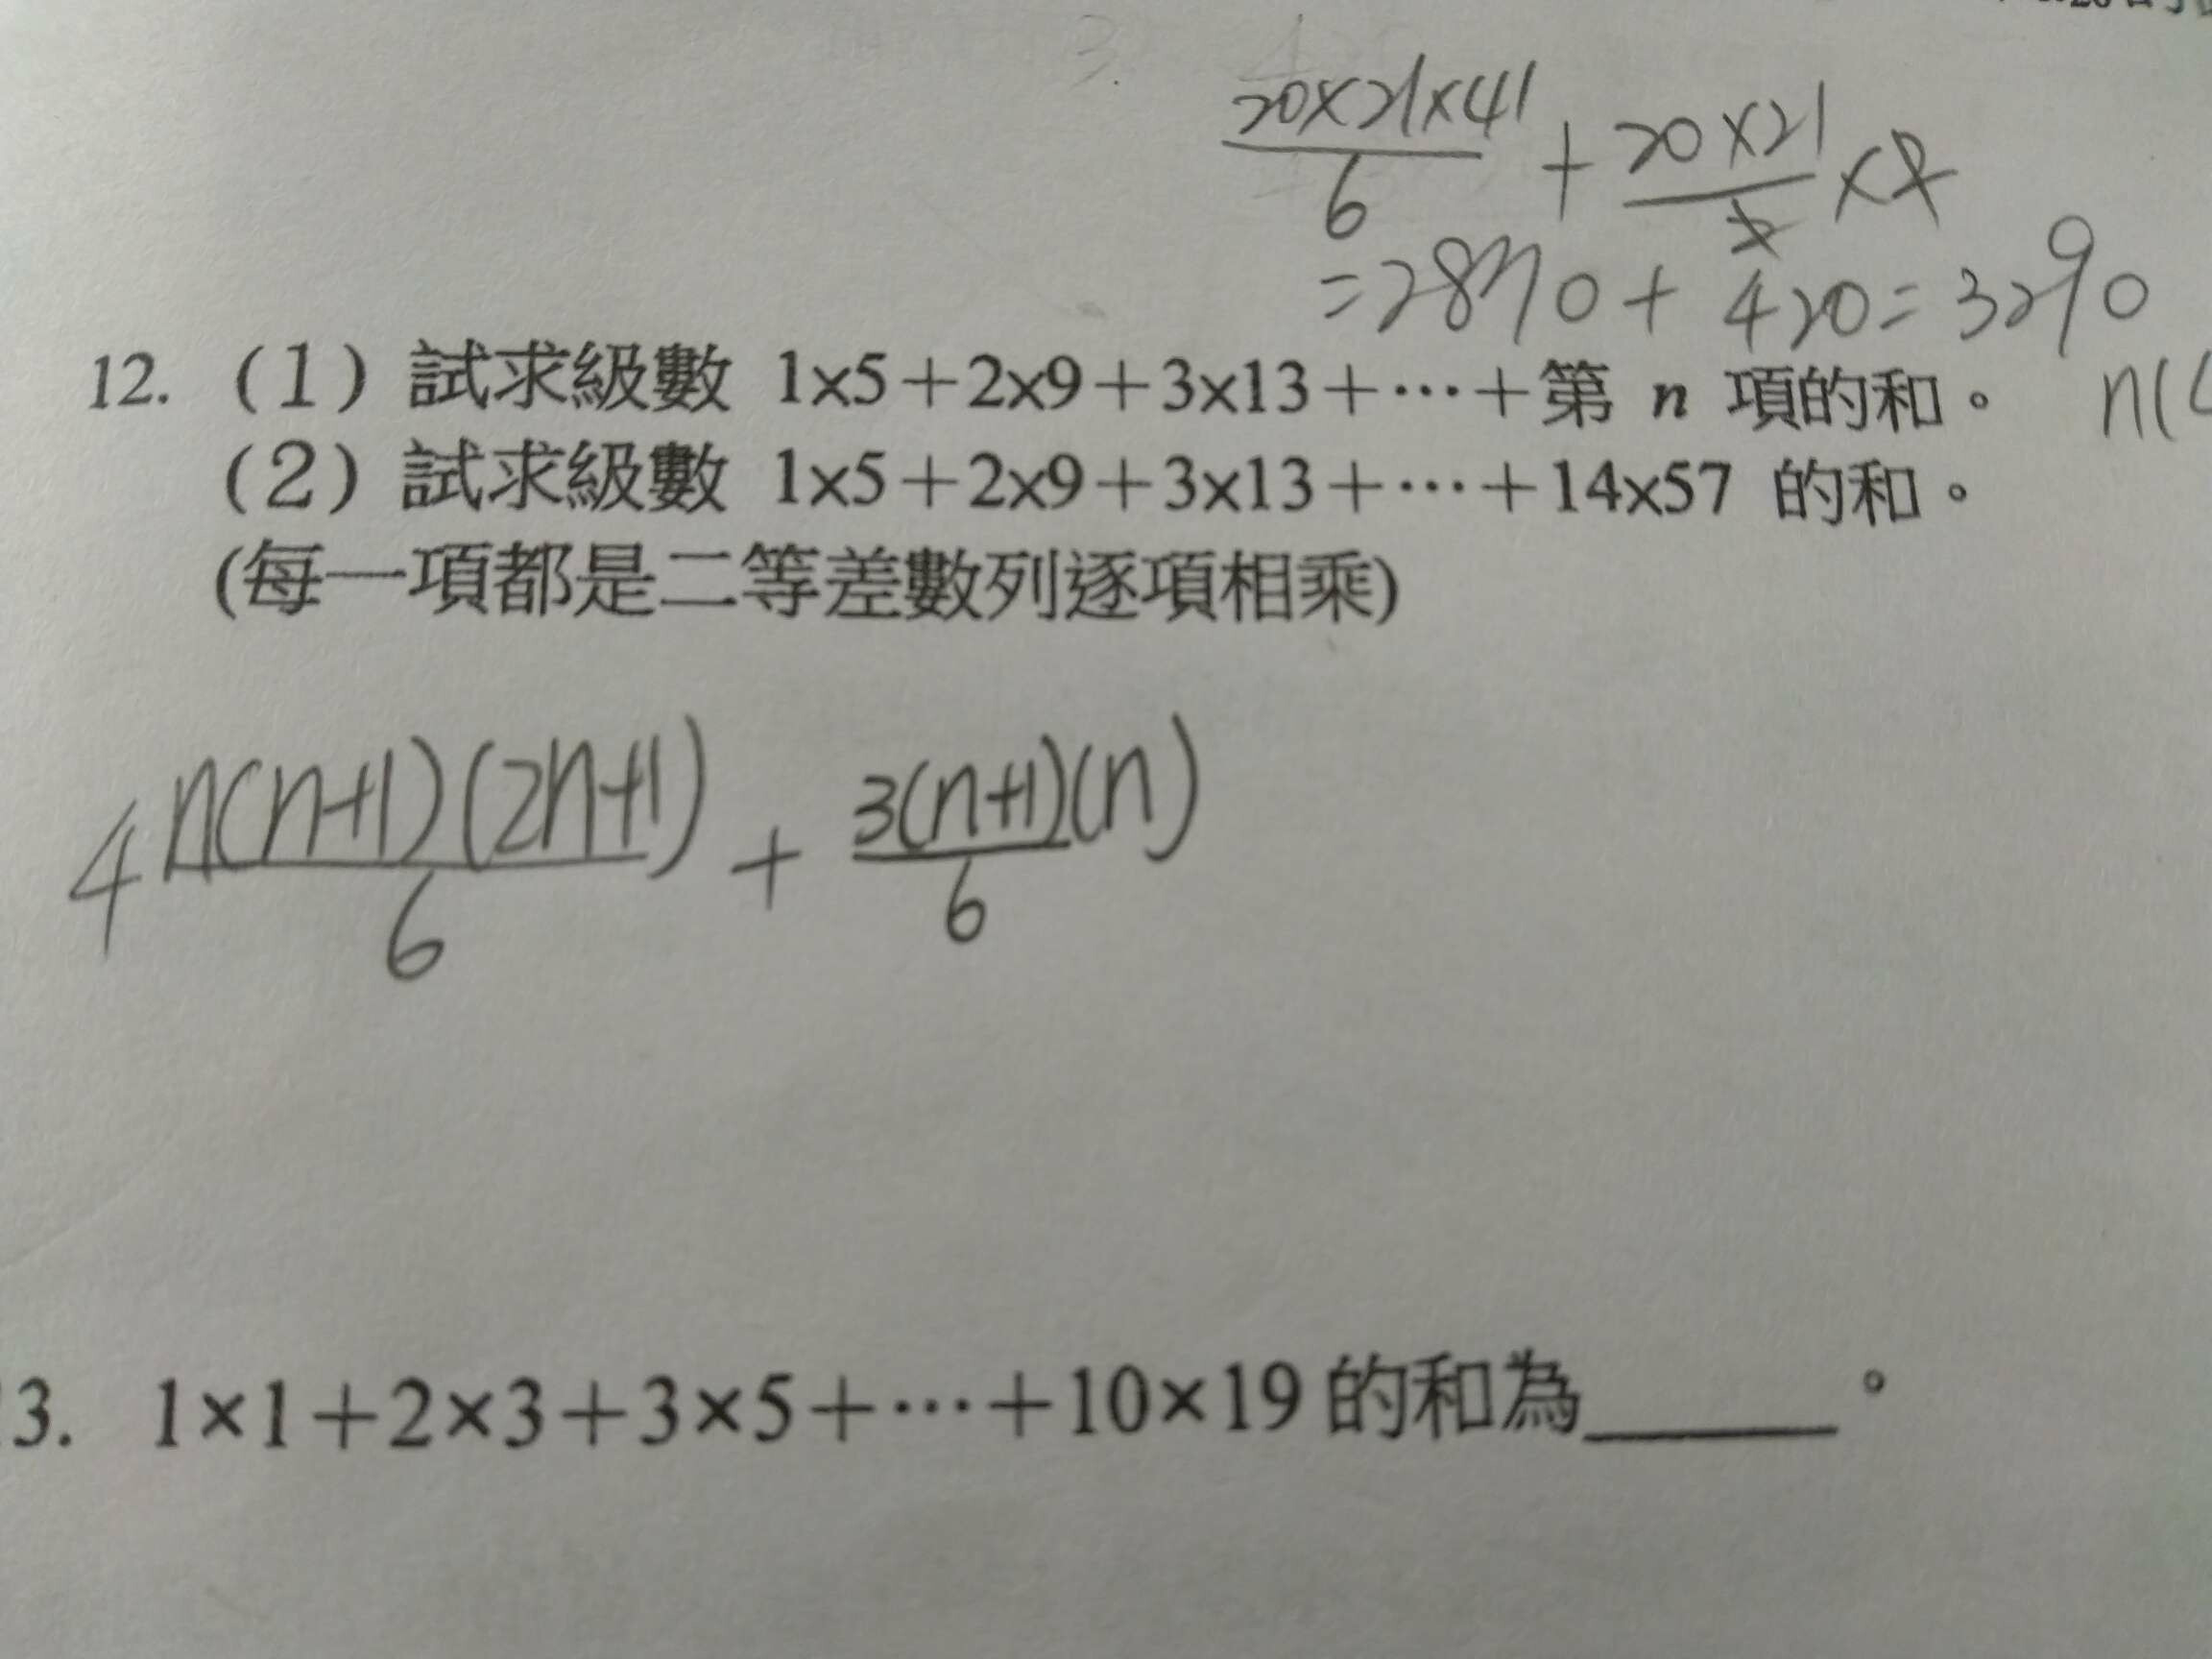 20×21×41/6 + 20×21/2 ×2
=2870+420=3290
12. (1) 試求級數 1×5+2×9+3×13+⋯+第 n 項的和。 n(
(2) 試求級數 1×5+2×9+3×13+⋯+14×57 的和。
(每一項都是二等差數列逐項相乘)
4 n(n+1)(2n+1)/6 + 3(n+1)(n)/6
3. 1×1+2×3+3×5+⋯+10×19 的和為_____。